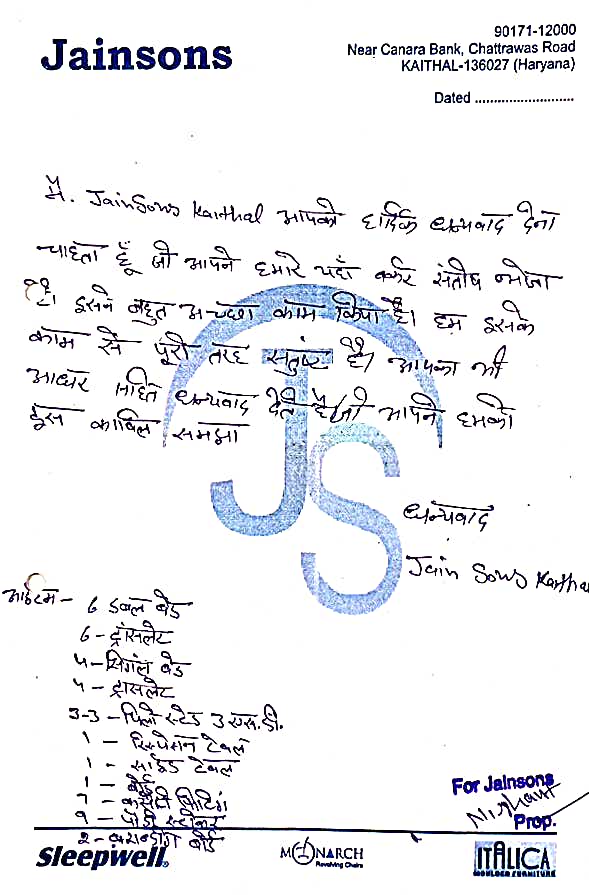 Jainsons
90171-12000
Near Canara Bank, Chattrawas Road
KAITHAL-136027 (Haryana)
Dated ..........................
मै. JainSons Kaithal आपको हार्दिक धन्यवाद देना
चाहता हूँ जो आपने हमारे यहाँ वर्कर संतोष भेजा
है। इसने बहुत अच्छा काम किया है। हम इसके
काम से पूरी तरह सतुंष्ट है। आपका भी
आधर सहित धन्यवाद देते है जो आपने हमको
इस काबिल समझा
JS
धन्यवाद
Jain Sons Kaithal
आईटम - 6 डबल बेड
6 - ट्रांसलेट
4 - सिगंल बेड
4 - ट्रासलेट
3-3 - पिलो स्टेड 3 एस.डी.
1 - रिस्पेशन टेबल
1 - साईड टेबल
1 - बोर्ड
2 - बोर्ड
For Jainsons
Nishant
Prop.
Sleepwell
MONARCH
Revolving Chairs
ITALICA
MOULDED FURNITURE